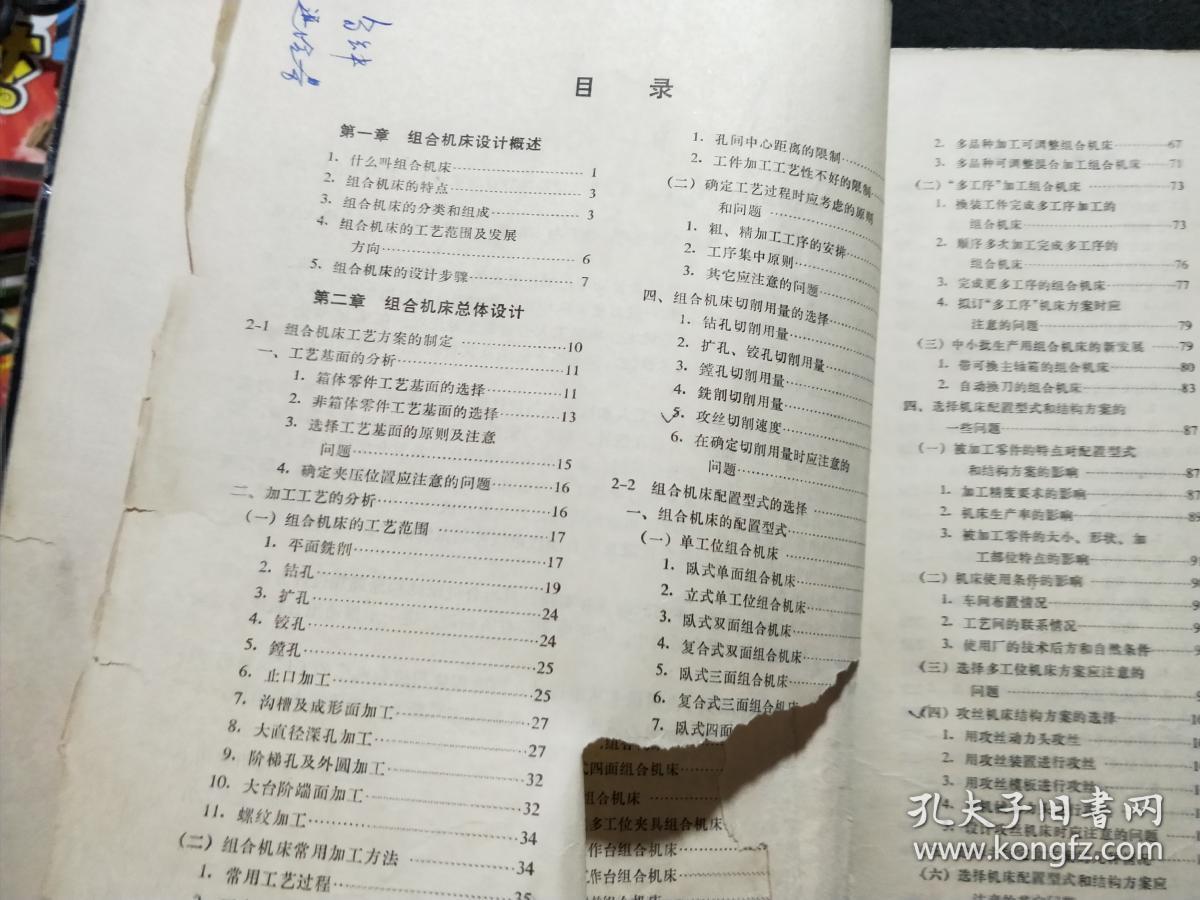 目 录
第一章 组合机床设计概述
1. 什么叫组合机床 1
2. 组合机床的特点 3
3. 组合机床的分类和组成 3
4. 组合机床的工艺范围及发展
方向 6
5. 组合机床的设计步骤 7
第二章 组合机床总体设计
2-1 组合机床工艺方案的制定 10
一、工艺基面的分析 11
1. 箱体零件工艺基面的选择 11
2. 非箱体零件工艺基面的选择 13
3. 选择工艺基面的原则及注意
问题 15
4. 确定夹压位置应注意的问题 16
二、加工工艺的分析 16
(一)组合机床的工艺范围 17
1. 平面銑削 17
2. 钻孔 19
3. 扩孔 24
4. 铰孔 24
5. 鏜孔 25
6. 止口加工 25
7. 沟槽及成形面加工 27
8. 大直径深孔加工 27
9. 阶梯孔及外圆加工 32
10. 大台阶端面加工 32
11. 螺纹加工 34
(二)组合机床常用加工方法 34
1. 常用工艺过程 35
1. 孔间中心距离的限制
2. 工件加工工艺性不好的限制
(二)确定工艺过程时应考虑的原则
和问题
1. 粗、精加工工序的安排
2. 工序集中原则
3. 其它应注意的问题
四、组合机床切削用量的选择
1. 钻孔切削用量
2. 扩孔、铰孔切削用量
3. 鏜孔切削用量
4. 銑削切削用量
5. 攻丝切削速度
6. 在确定切削用量时应注意的
问题
2-2 组合机床配置型式的选择
一、组合机床的配置型式
(一)单工位组合机床
1. 臥式单面组合机床
2. 立式单工位组合机床
3. 臥式双面组合机床
4. 复合式双面组合机床
5. 臥式三面组合机床
6. 复合式三面组合机床
7. 臥式四面
式四面组合机床
组合机床
多工位夹具组合机床
作台组合机床
工作台组合机床
2. 多品种加工可调整组合机床 67
3. 多品种可调整混合加工组合机床 71
(二)“多工序”加工组合机床 73
1. 换装工件完成多工序加工的
组合机床 73
2. 顺序多次加工完成多工序的
组合机床 76
3. 完成更多工序的组合机床 77
4. 拟订“多工序”机床方案时应
注意的问题 79
(三)中小批生产用组合机床的新发展 79
1. 带可换主轴箱的组合机床 80
2. 自动换刀的组合机床 83
四、选择机床配置型式和结构方案的
一些问题 87
(一)被加工零件的特点对配置型式
和结构方案的影响 87
1. 加工精度要求的影响 87
2. 机床生产率的影响 89
3. 被加工零件的大小、形状、加
工部位特点的影响
(二)机床使用条件的影响
1. 车间布置情况
2. 工艺间的联系情况
3. 使用厂的技术后方和自然条件
(三)选择多工位机床方案应注意的
问题
(四)攻丝机床结构方案的选择
1. 用攻丝动力头攻丝
2. 用攻丝装置进行攻丝
3. 用攻丝模板进行攻丝
5. 设计攻丝机床时应注意的问题
(六)选择机床配置型式和结构方案应
孔夫子旧书网
www.kongfz.com